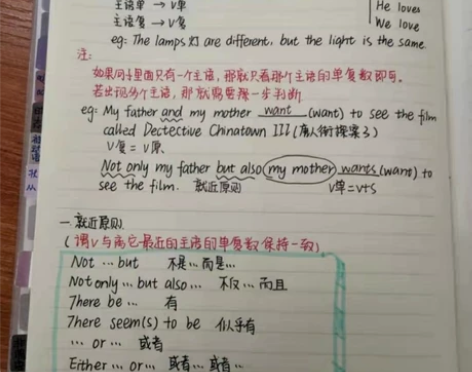 主语单 → v单
He loves
主语复 → v复
We love
eg: The lamps 灯 are different, but the light is the same
注:
如果句子里面只有一个主语,那就只看那个主语的单复数即可.
若出现多个主语,那就需要进一步判断
eg: My father and my mother want (want) to see the film
called Dectective Chinatown III (唐人街探案3)
V复 = V原
Not only my father but also (my mother) wants (want) to
see the film. 就近原则 v单=v+s
一. 就近原则.
(谓v与离它最近的主语的单复数保持一致)
Not … but 不是…而是…
Not only … but also … 不仅…而且
There be … 有
There seem(s) to be 似乎有
… or … 或者
Either … or … 或者…或者…